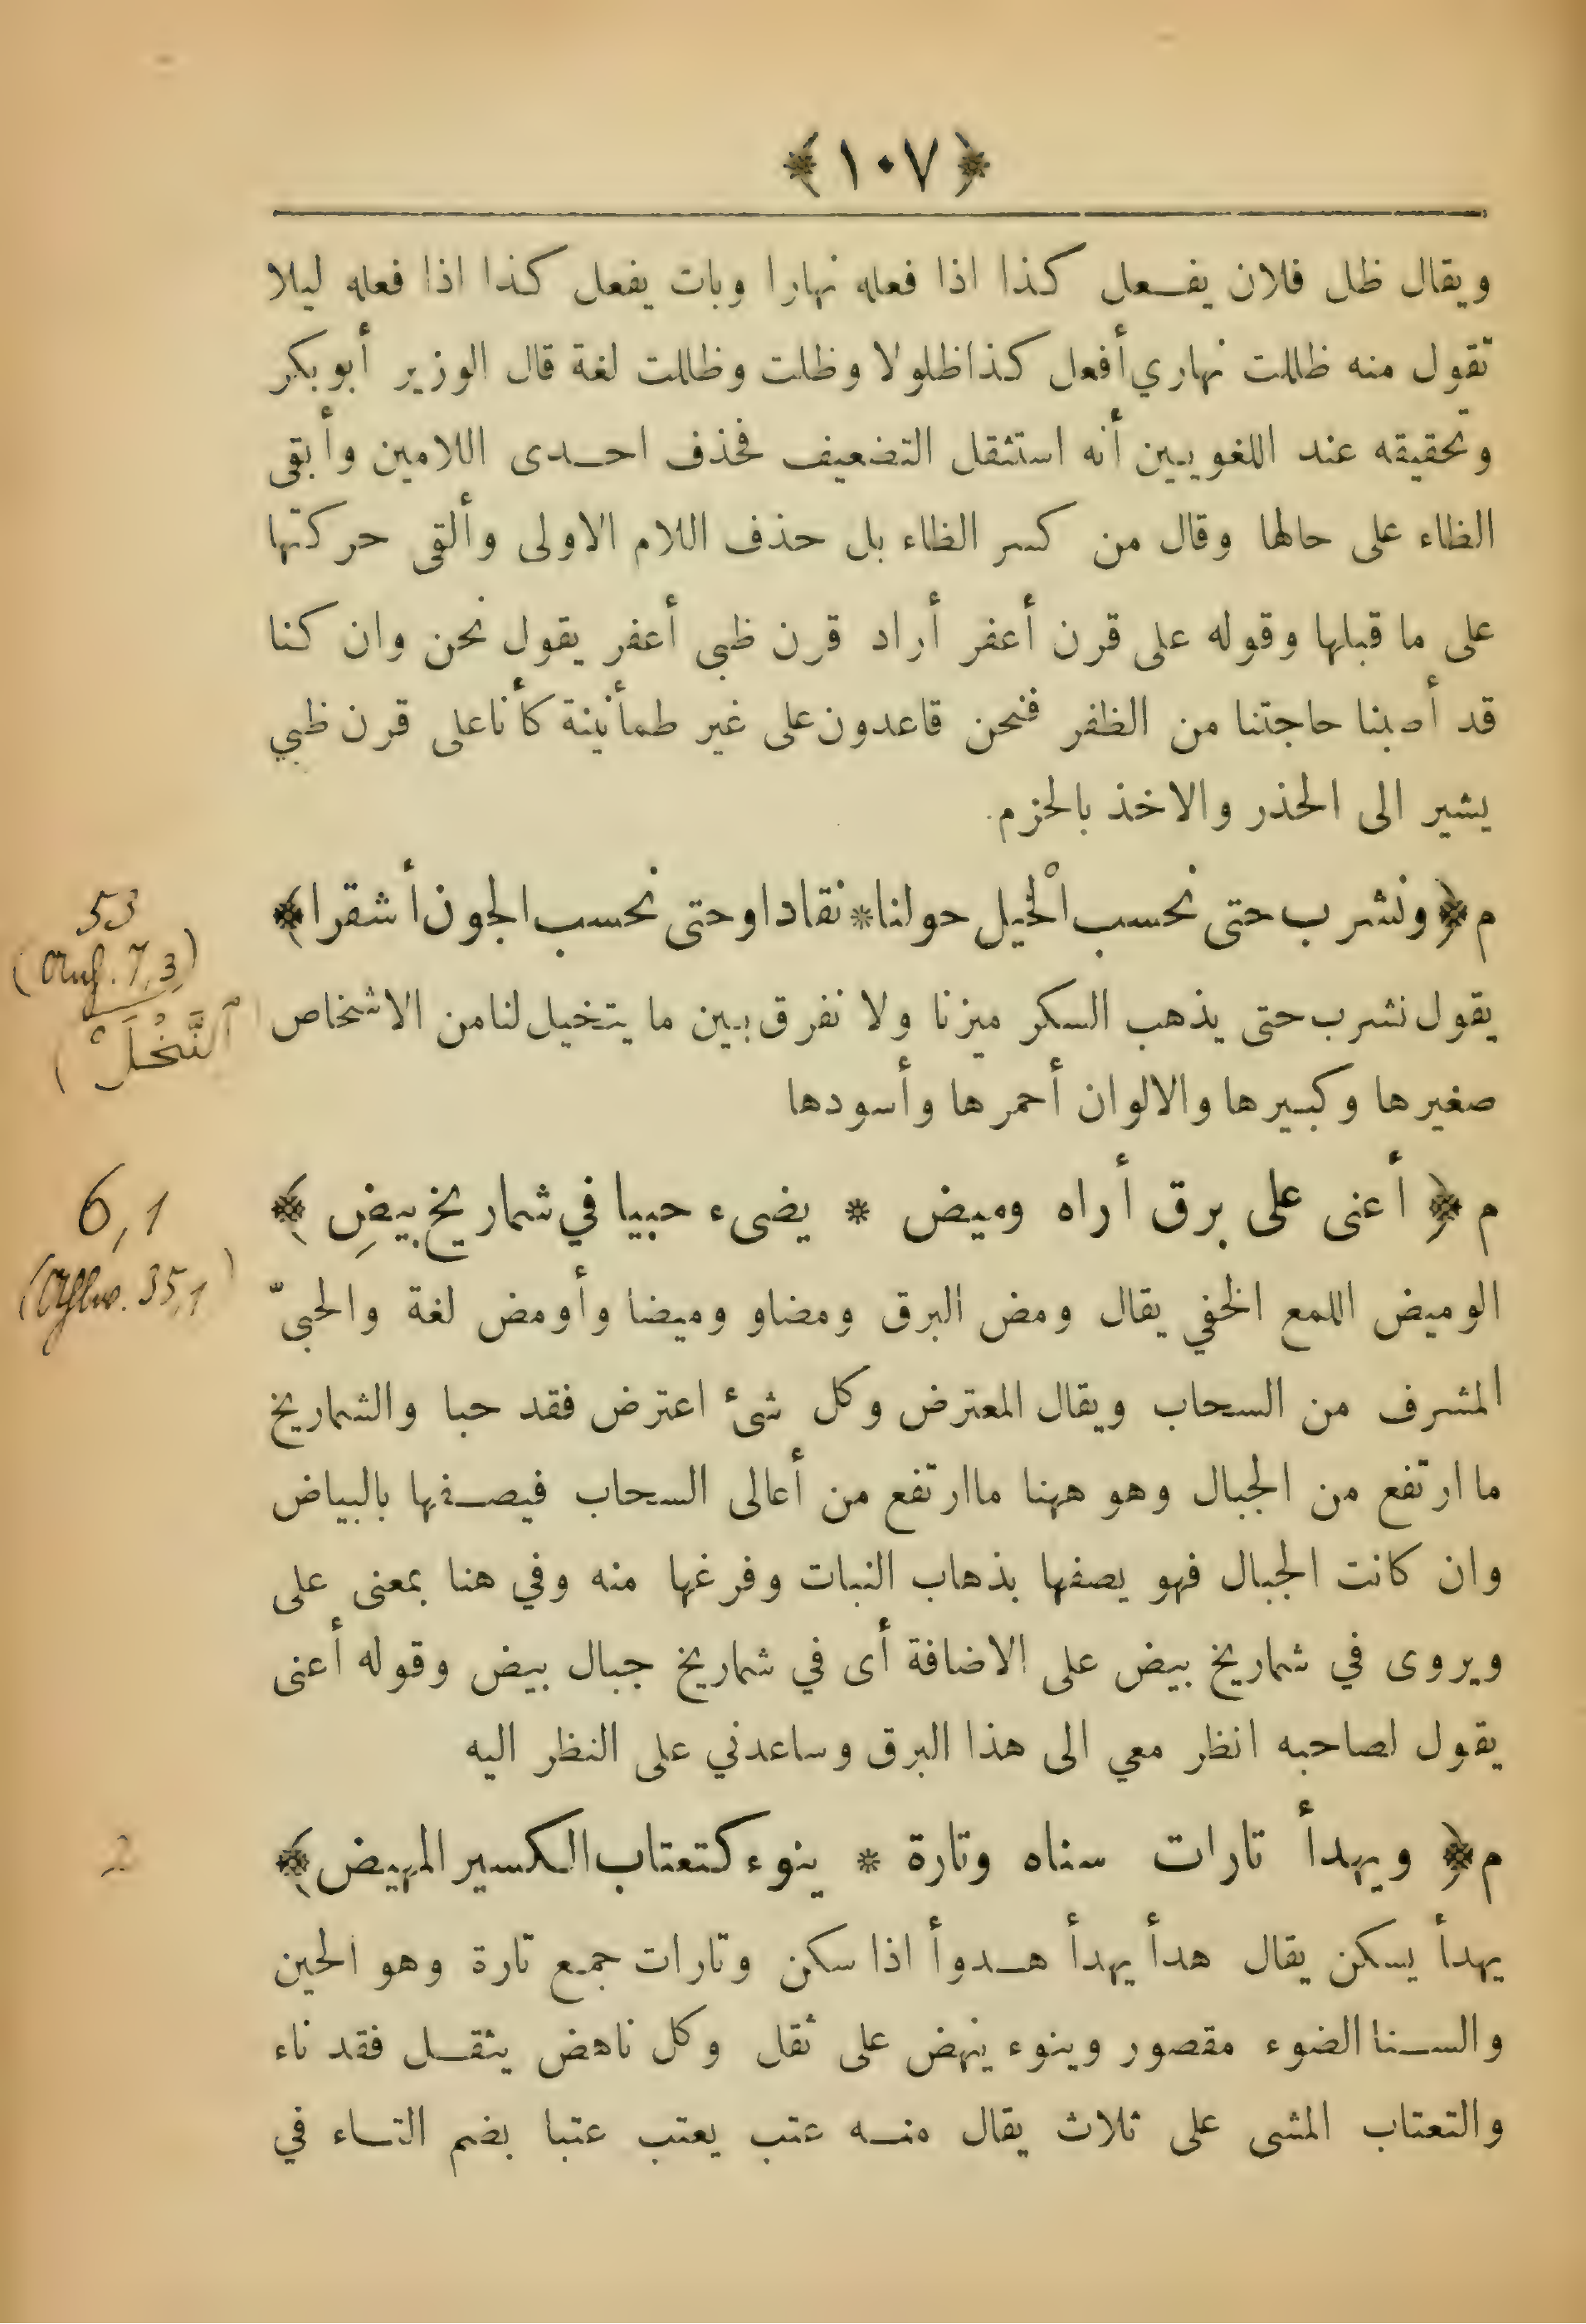 ﴿ ١٠٧ ﴾
ويقال ظل فلان يفعل كذا اذا فعله نهارا وبات يفعل كذا اذا فعله ليلا
تقول منه ظللت نهاري أفعل كذا ظلولا وظلت وظللت لغة قال الوزير أبو بكر
وتحقيقه عند اللغويين أنه استثقل التضعيف فحذف احدى اللامين وأبقى
الظاء على حالها وقال من كسر الظاء بل حذف اللام الاولى وألقى حركتها
على ما قبلها وقوله على قرن أعفر أراد قرن ظبي أعفر يقول نحن وان كنا
قد أصبنا حاجتنا من الظفر فنحن قاعدون على غير طمأنينة كأنا على قرن ظبي
يشير الى الحذر والاخذ بالحزم.
م ﴿ ونشرب حتى نحسب الْخيل حولنا * نقادا وحتى نحسب الجون أشقرا ﴾
53
(7,3)
النَّخْلَ)
يقول نشرب حتى يذهب السكر ميزنا ولا نفرق بين ما يتخيل لنا من الاشخاص
صغيرها وكبيرها والالوان أحمرها وأسودها
م ﴿ أعنى على برق أراه وميض * يضىء حبيا في شماريخ بيضِ ﴾
6,1
(Ahlw. 35,1)
الوميض اللمع الخفي يقال ومض البرق ومضاو وميضا وأومض لغة والحبىّ
المشرف من السحاب ويقال المعترض وكل شئ اعترض فقد حبا والشماريخ
ما ارتفع من الجبال وهو ههنا ما ارتفع من أعالى السحاب فيصفها بالبياض
وان كانت الجبال فهو يصفها بذهاب النبات وفرغها منه وفي هنا بمعنى على
ويروى في شماريخ بيض على الاضافة أى في شماريخ جبال بيض وقوله أعنى
يقول لصاحبه انظر معي الى هذا البرق وساعدني على النظر اليه
م ﴿ ويهدأ تارات سناه وتارة * ينوء كتعتاب الكسير المهيض ﴾
2
يهدأ يسكن يقال هدأ يهدأ هدوأ اذا سكن وتارات جمع تارة وهو الحين
والسنا الضوء مقصور وينوء ينهض على ثقل وكل ناهض يثقل فقد ناء
والتعتاب المشى على ثلاث يقال منه عتب يعتب عتبا بضم التاء في